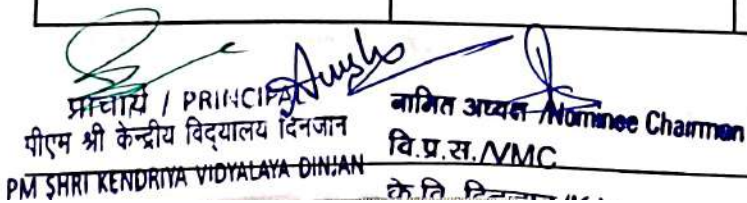 प्राचार्य / PRINCIPAL
पीएम श्री केन्द्रीय विद्यालय दिनजान
PM SHRI KENDRIYA VIDYALAYA DINJAN
नामित अध्यक्ष /Nominee Chairman
वि.प्र.स./VMC
के.वि.